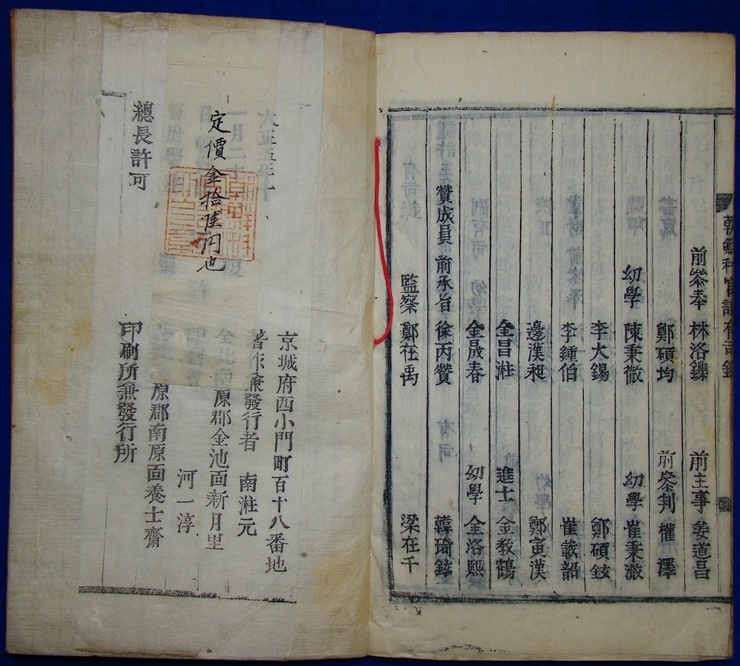 前叅奉 林洛鏶 前主事 姜道昌
鄭碩均 前叅判 權 澤
幼學 陳秉徹 幼學 崔秉澈
李大錫 鄭碩鉉
李鍾伯 崔載韶
邊漢昶 鄭寅漢
金昌湴 進士 金敎鶴
金晟春 幼學 金洛熙
贊成員 前承旨 徐丙贊 韓琦鉉
監察 鄭在禹 梁在千
大正五年十
一月二十
定價金拾陸円也
總長許可
京城府西小門町百十八番地
著作兼發行者 南湴元
原郡金池面新月里
河一淳
原郡南原面養士齋
印刷所兼發行所